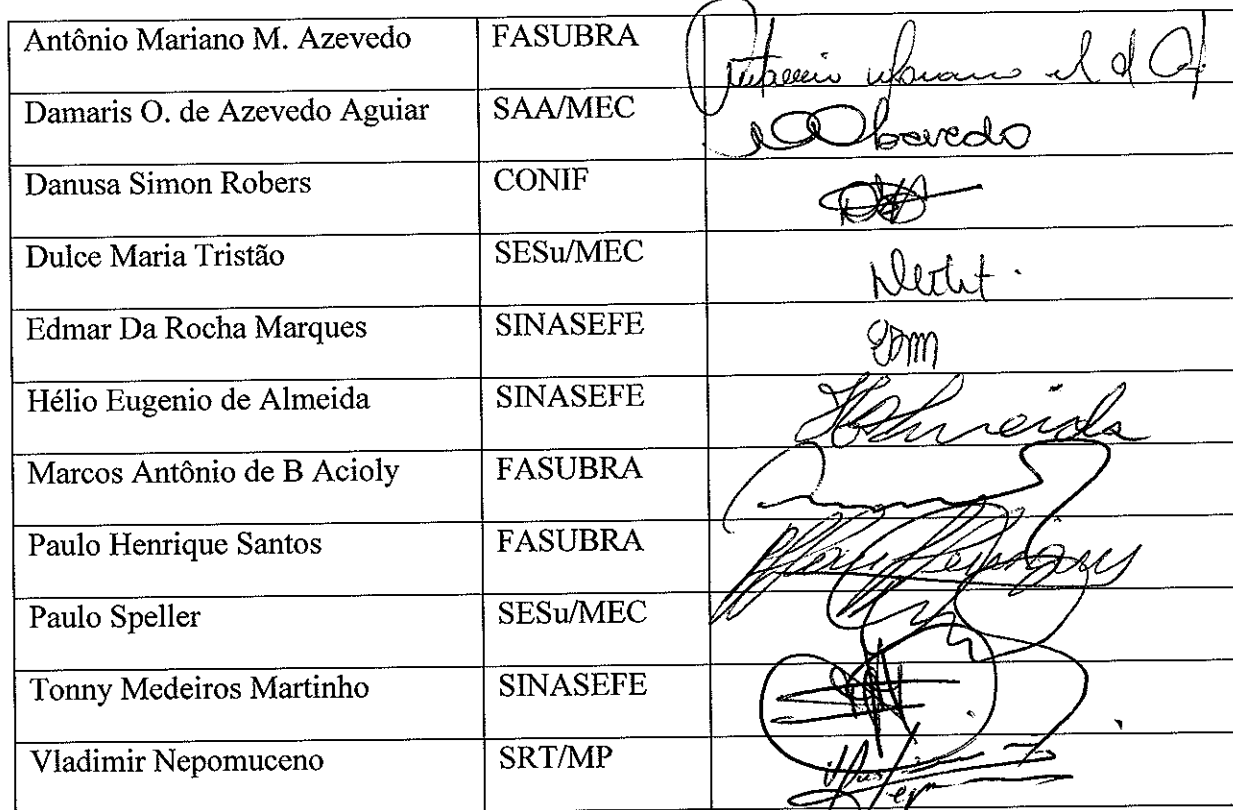 Antônio Mariano M. Azevedo FASUBRA
Damaris O. de Azevedo Aguiar SAA/MEC Azevedo
Danusa Simon Robers CONIF
Dulce Maria Tristão SESu/MEC
Edmar Da Rocha Marques SINASEFE
Hélio Eugenio de Almeida SINASEFE HEAlmeida
Marcos Antônio de B Acioly FASUBRA
Paulo Henrique Santos FASUBRA
Paulo Speller SESu/MEC
Tonny Medeiros Martinho SINASEFE
Vladimir Nepomuceno SRT/MP